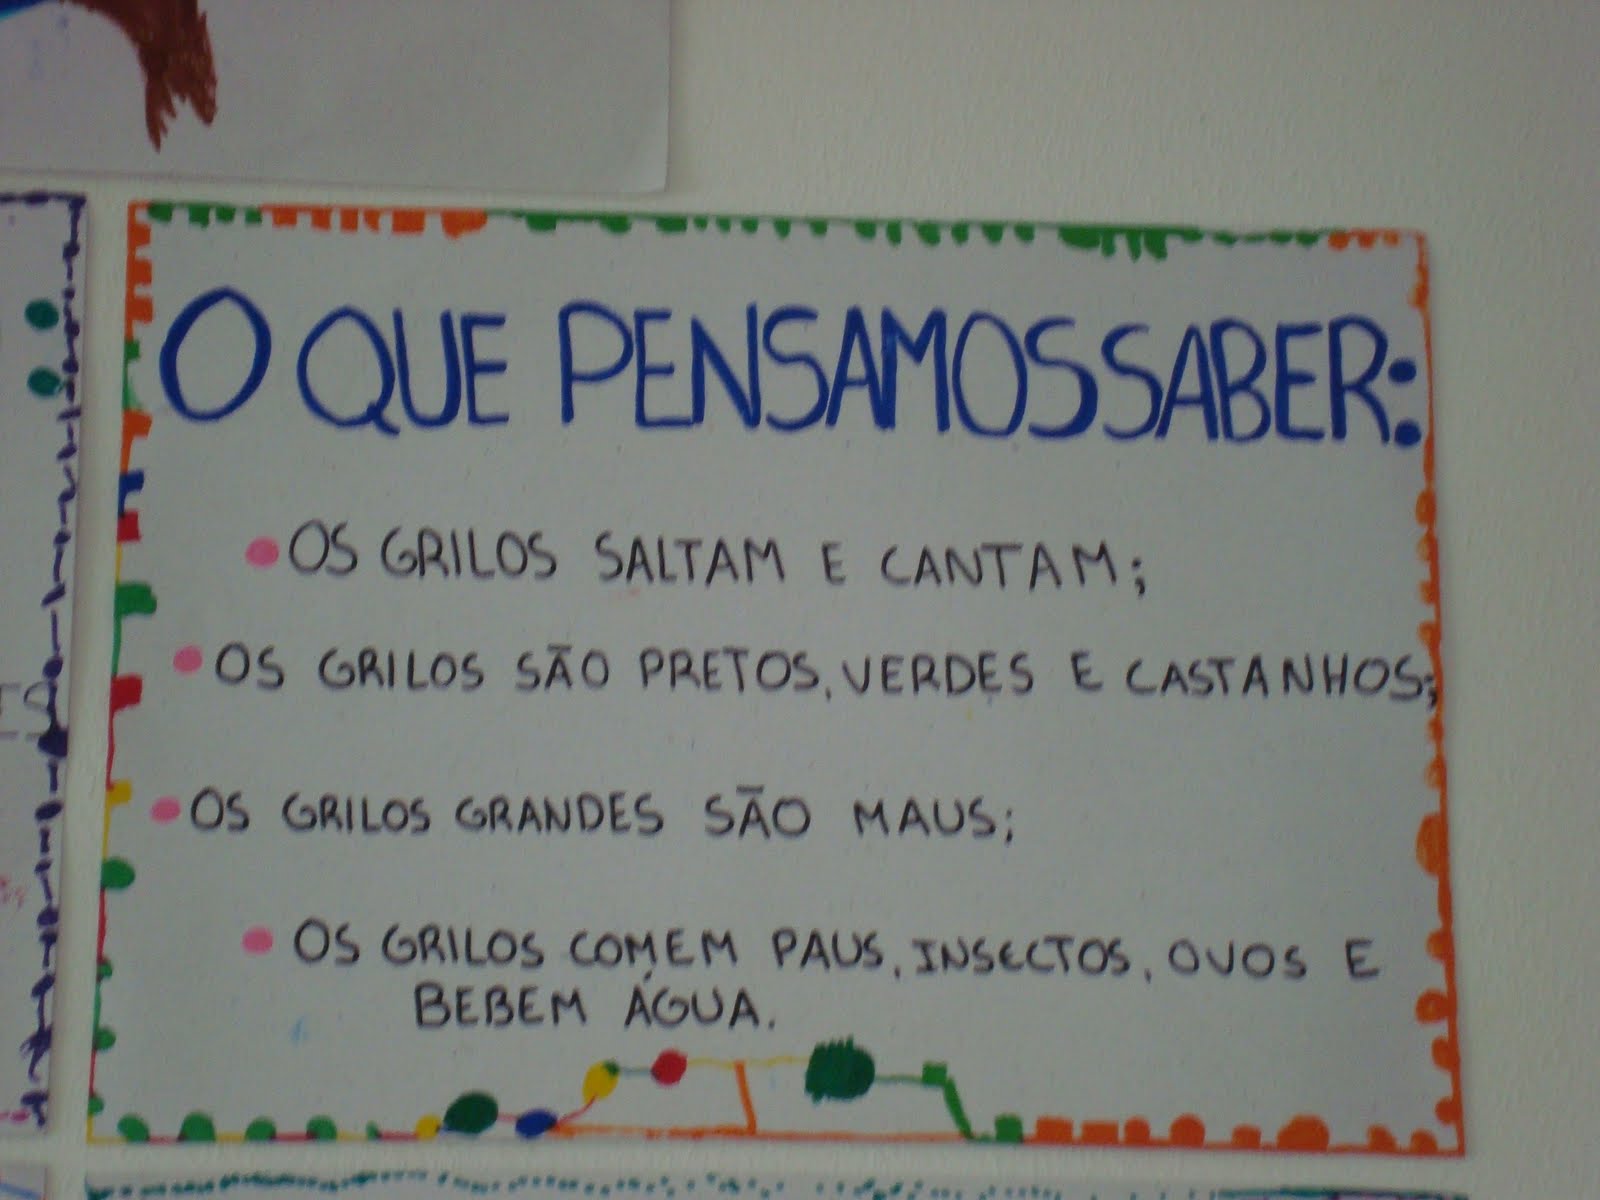 O QUE PENSAMOS SABER:
• OS GRILOS SALTAM E CANTAM;
• OS GRILOS SÃO PRETOS, VERDES E CASTANHOS;
• OS GRILOS GRANDES SÃO MAUS;
• OS GRILOS COMEM PAUS, INSECTOS, OVOS E
BEBEM ÁGUA.